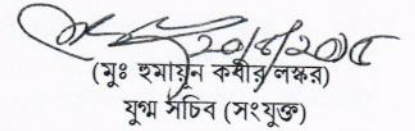 ২০/৪/২০১৫
(মুঃ হুমায়ুন কবীর লস্কর)
যুগ্ম সচিব (সংযুক্ত)